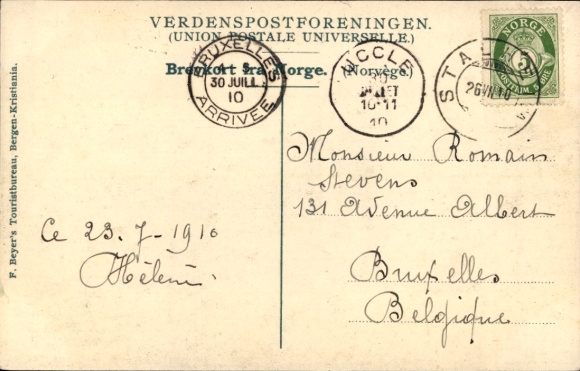 VERDENSPOSTFORENINGEN.
(UNION POSTALE UNIVERSELLE.)
Brevkort fra Norge. (Norvège.)
BRUXELLES
30 JUILL
10
ARRIVÉE
UCCLE
10-11
10
STAL
26 VII 10
NORGE
5
Monsieur Romain
Stevens
131 Avenue Albert
Bruxelles
Belgique
Ce 23. 7-1910
Hélène.
F. Beyer's Touristbureau, Bergen-Kristiania.